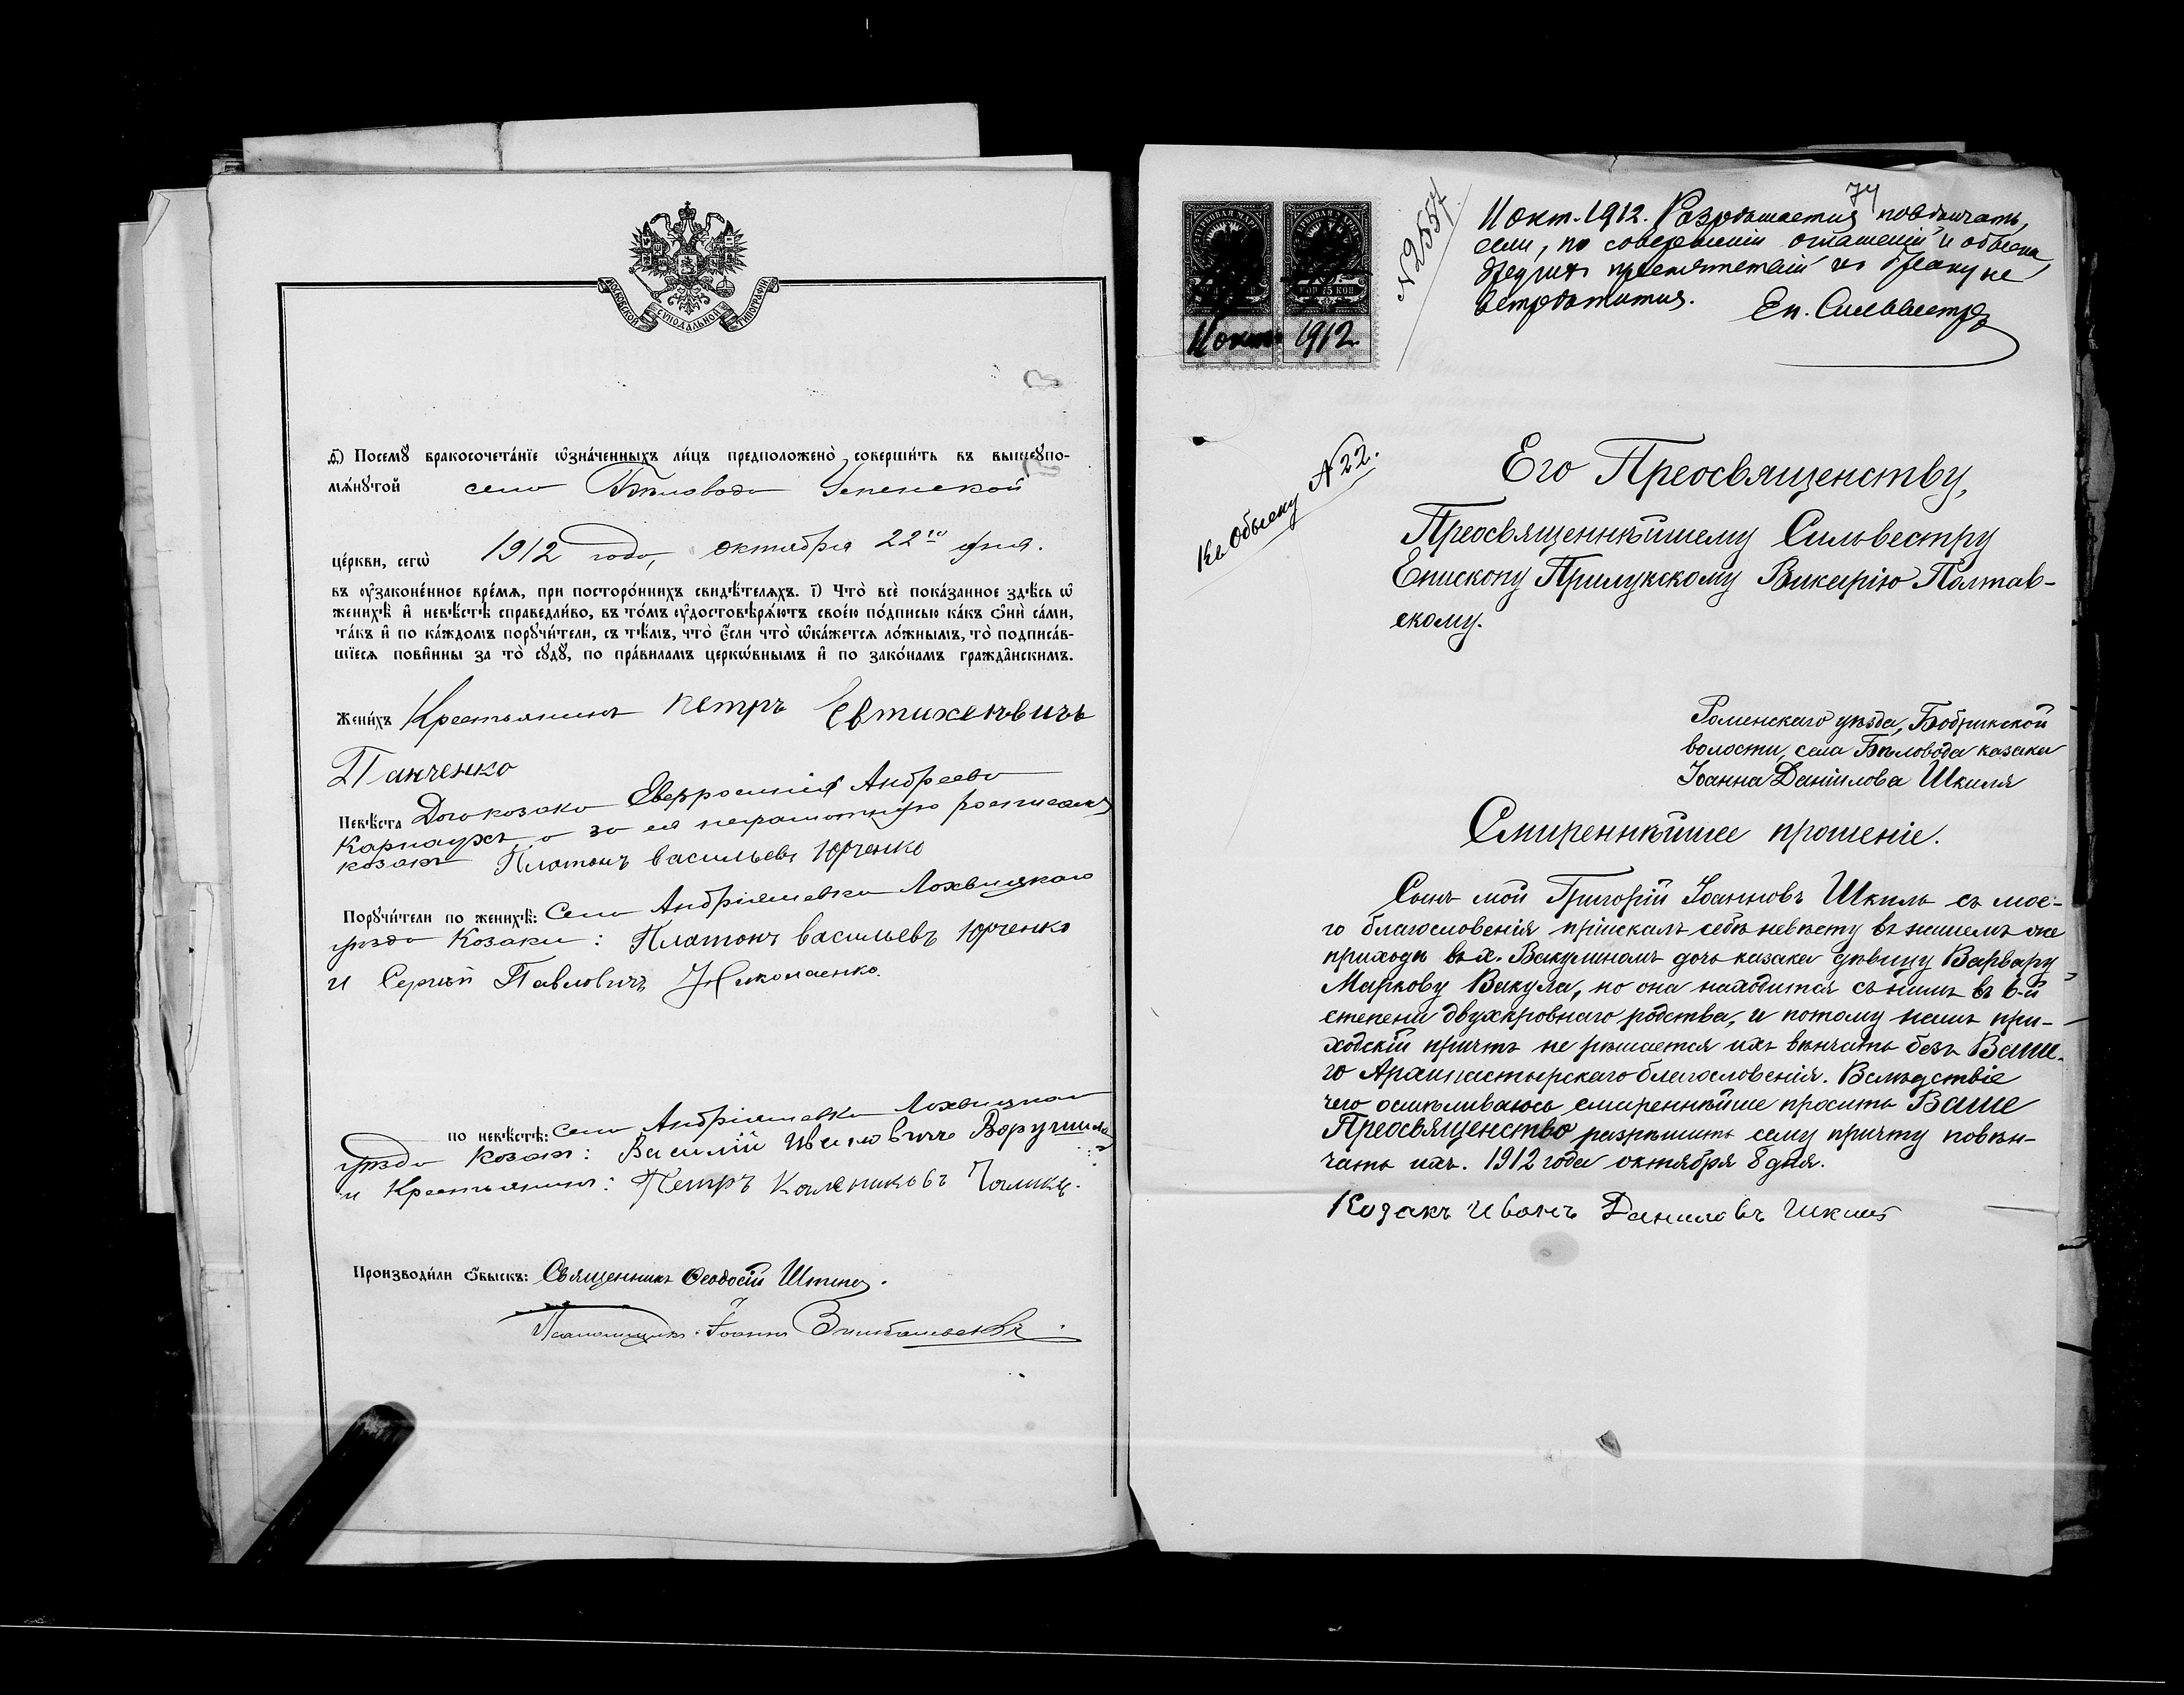 МОСКОВСКОЙ СѴНОДАЛЬНОЙ ТИПОГРАФІИ
д҃) Посемꙋ̀ бракосочета́нїе ѡ҆зна́ченныхъ ли́цъ предположенѡ̀ соверши́ть въ вышеꙋпо-
мѧ́нꙋтой село Бѣловода Успенской
це́ркви, сегѡ̀ 1912 года, октября 22го дня.
въ ᲂу҆законе́нное вре́мѧ, при посторо́ннихъ свидѣ́телѧхъ. і҃) Что̀ всѐ пока́занное здѣ́сь ѡ҆
женихѣ̀ и҆ невѣ́стѣ справедли́во, въ то́мъ ᲂу҆достовѣрѧ́ютъ свое́ю по́дписью ка́къ ѻ҆нѝ са́ми,
та́къ и҆ по ка́ждомъ порꙋчи́тели, съ тѣ́мъ, что̀ є҆́сли что̀ ѡ҆ка́жетсѧ ло́жнымъ, то̀ подписа́в-
шїесѧ пови́нны за то̀ сꙋдꙋ̀, по пра́виламъ церко́внымъ и҆ по зако́намъ гражда́нскимъ.
Жени́хъ Крестьянинъ Петръ Евтихеевичъ
Панченко
Невѣ́ста Доч козака Евфросинія Андреева
Карнаухъ, а за ея неграмотную росписался
козакъ Платонъ Васильевъ Юрченко
Порꙋчи́тели по женихѣ̀: Села Андріяшевки Лохвицкаго
уѣзда Козаки: Платонъ Васильевъ Юрченко
и Сергѣй Павловичъ Николаенко.
по невѣ́стѣ: Села Андріяшевки Лохвицкаго
уѣзда Козакъ: Василій Ивановичъ
и Крестьянинъ: Петръ Калениковъ
Производи́ли ѻ҆́быскъ: Священникъ Ѳеодосій
Псаломщикъ: Іоаннъ
74
N 2554
11 окт. 1912. Разрѣшается повѣнчать,
если, по совершеніи оглашеній и обыска,
другихъ препятствій къ браку не
встрѣтится. Еп. Сильвестръ
ГЕРБОВАЯ МАРКА
ГЕРБОВАЯ МАРКА
75 КОП
11 окт. 1912.
Къ Обыску N 22.
Его Преосвященству,
Преосвященнѣйшему Сильвестру
Епископу Прилукскому Викарію Полтав-
скому.
Роменскаго уѣзда, Бобрикской
волости, села Бѣловода казака
Іоанна Даніилова Шкиля
Смиреннѣйшее прошеніе.
Сынъ мой Григорій Іоанновъ Шкиль съ мое-
го благословенія пріискалъ себѣ невѣсту въ нашемъ же
приходѣ въ х. Вакулиномъ дочь казака дѣвицу Варвару
Маркову Вакула, но она находится съ нимъ въ 6-й
степени двухкровнаго родства, и потому нашъ при-
ходскій причтъ не рѣшается ихъ вѣнчать безъ Ваше-
го Архипастырскаго благословенія. Вслѣдствіе
чего осмѣливаюсь смиреннѣйше просить Ваше
Преосвященство разрѣшить сему причту повѣн-
чать ихъ. 1912 года октября 8 дня.
Козакъ Иванъ Даниловъ Шкиль